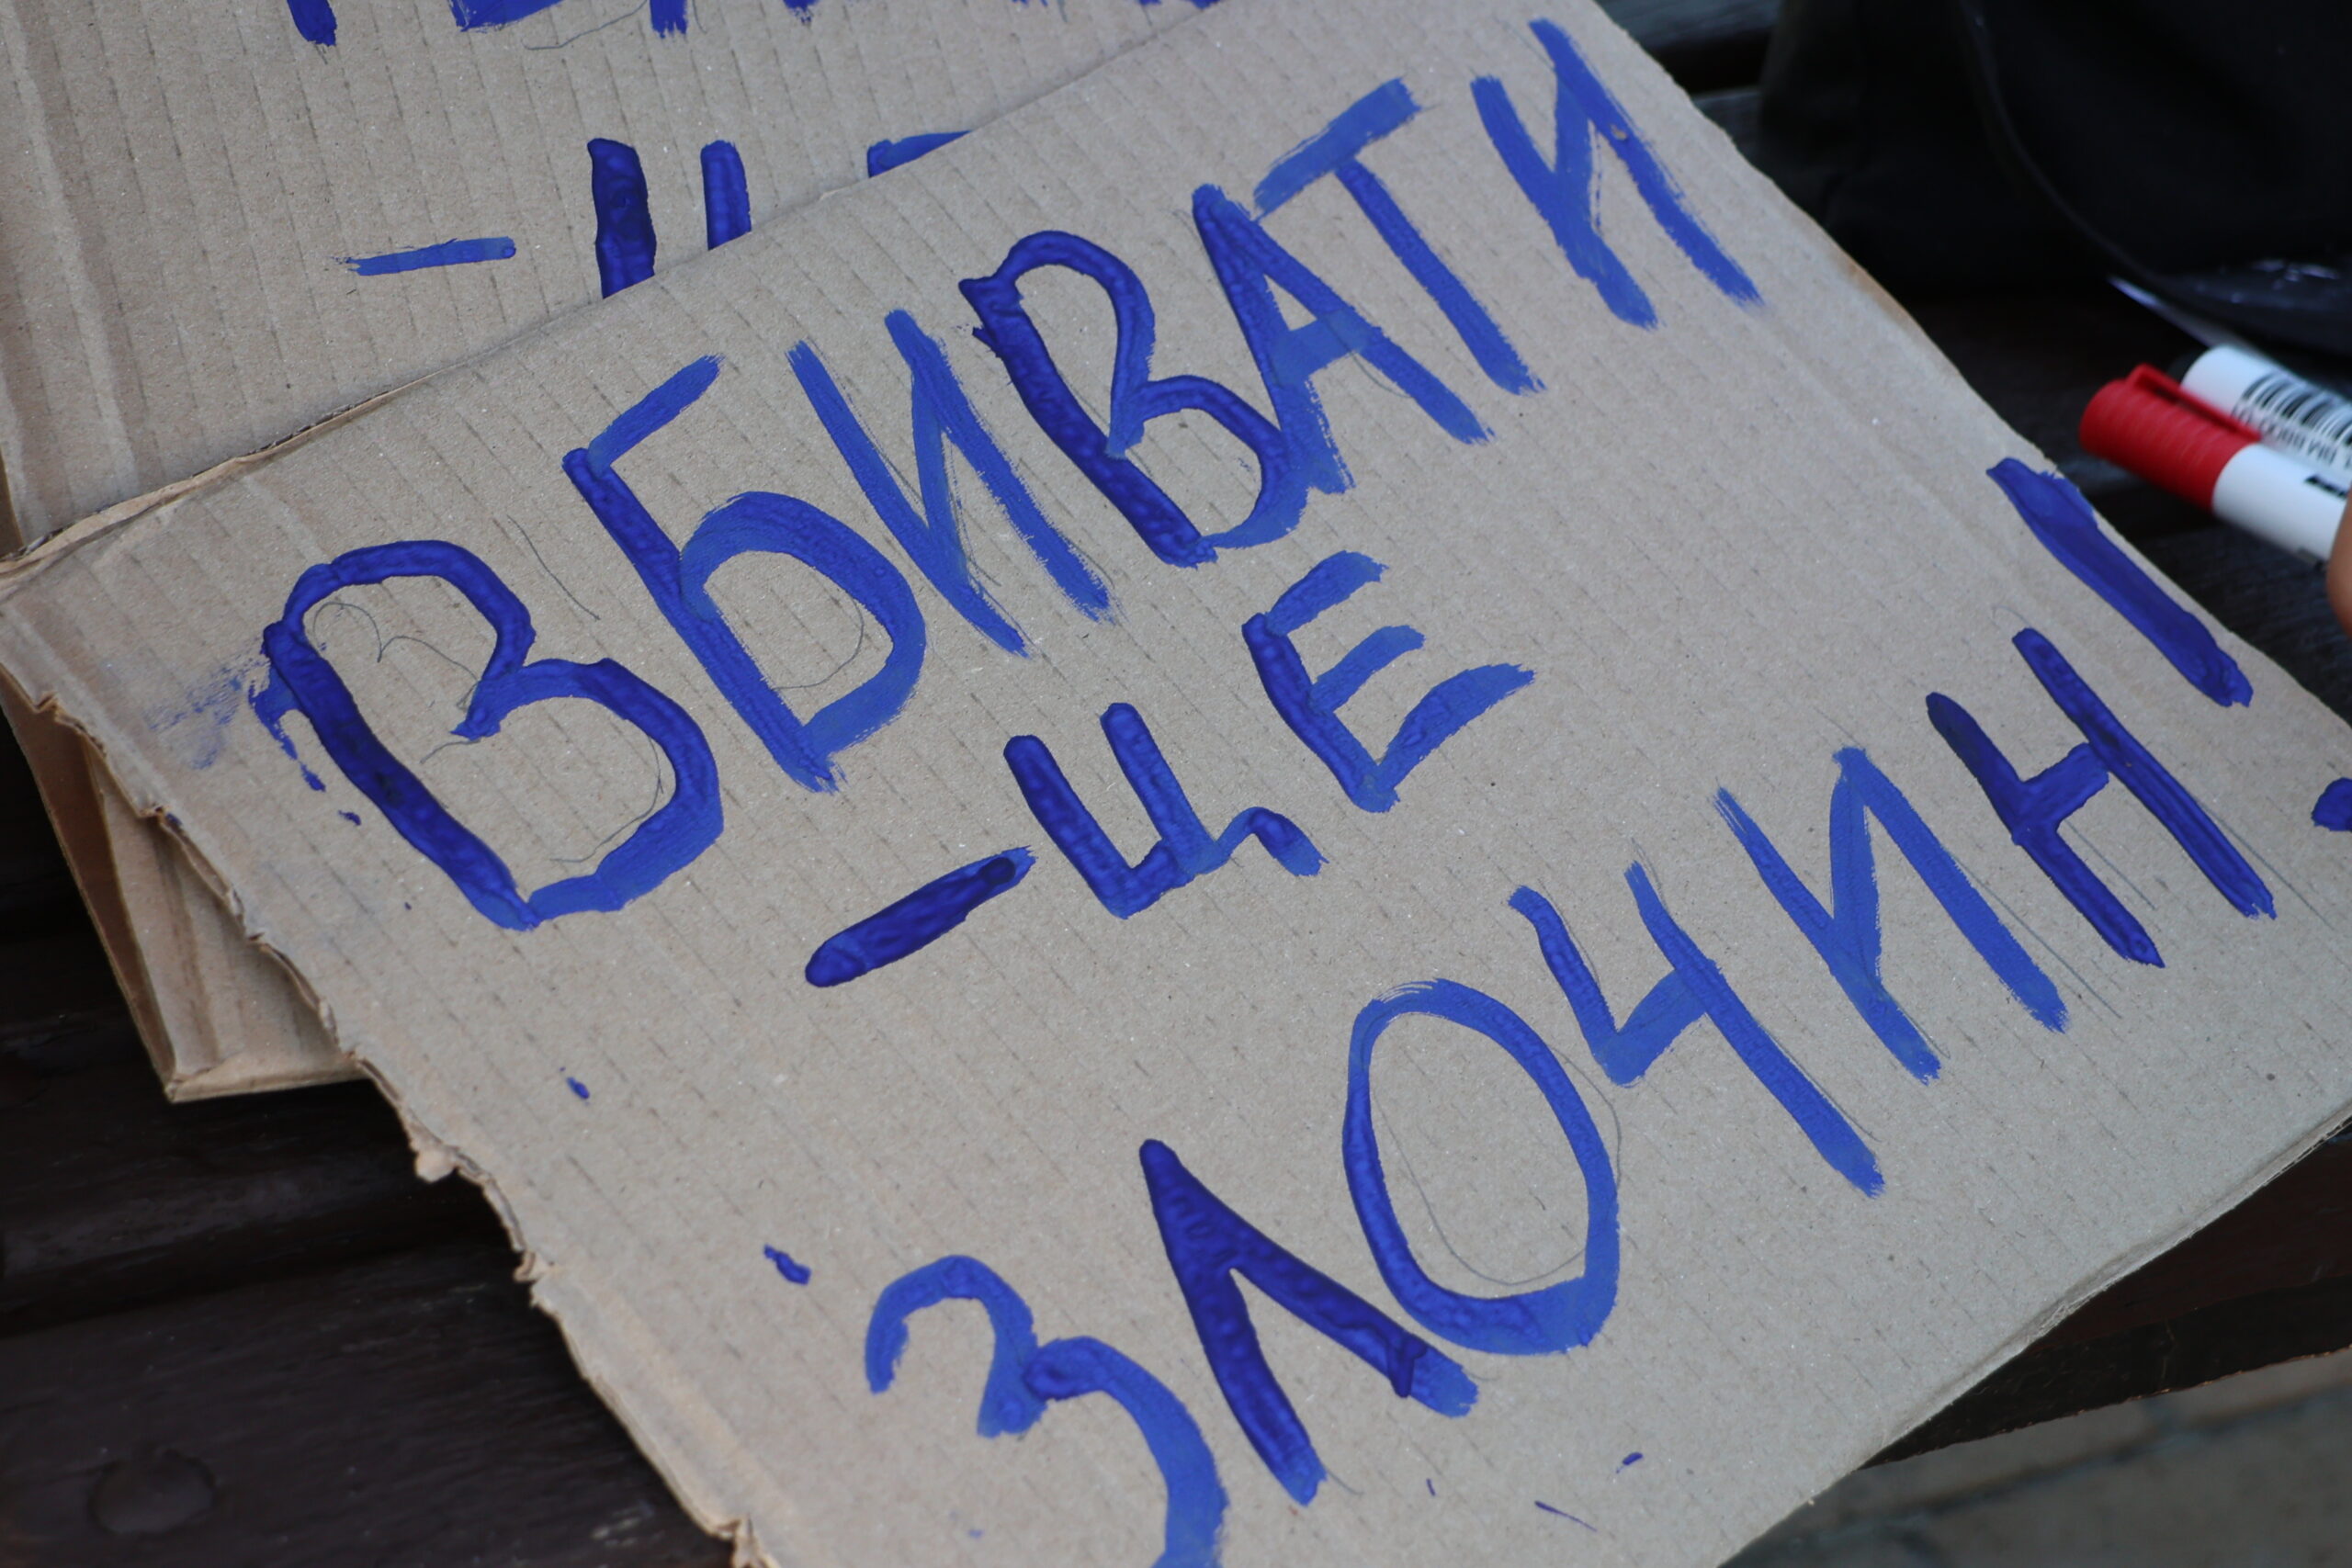 ВБИВАТИ
- ЦЕ
ЗЛОЧИН!